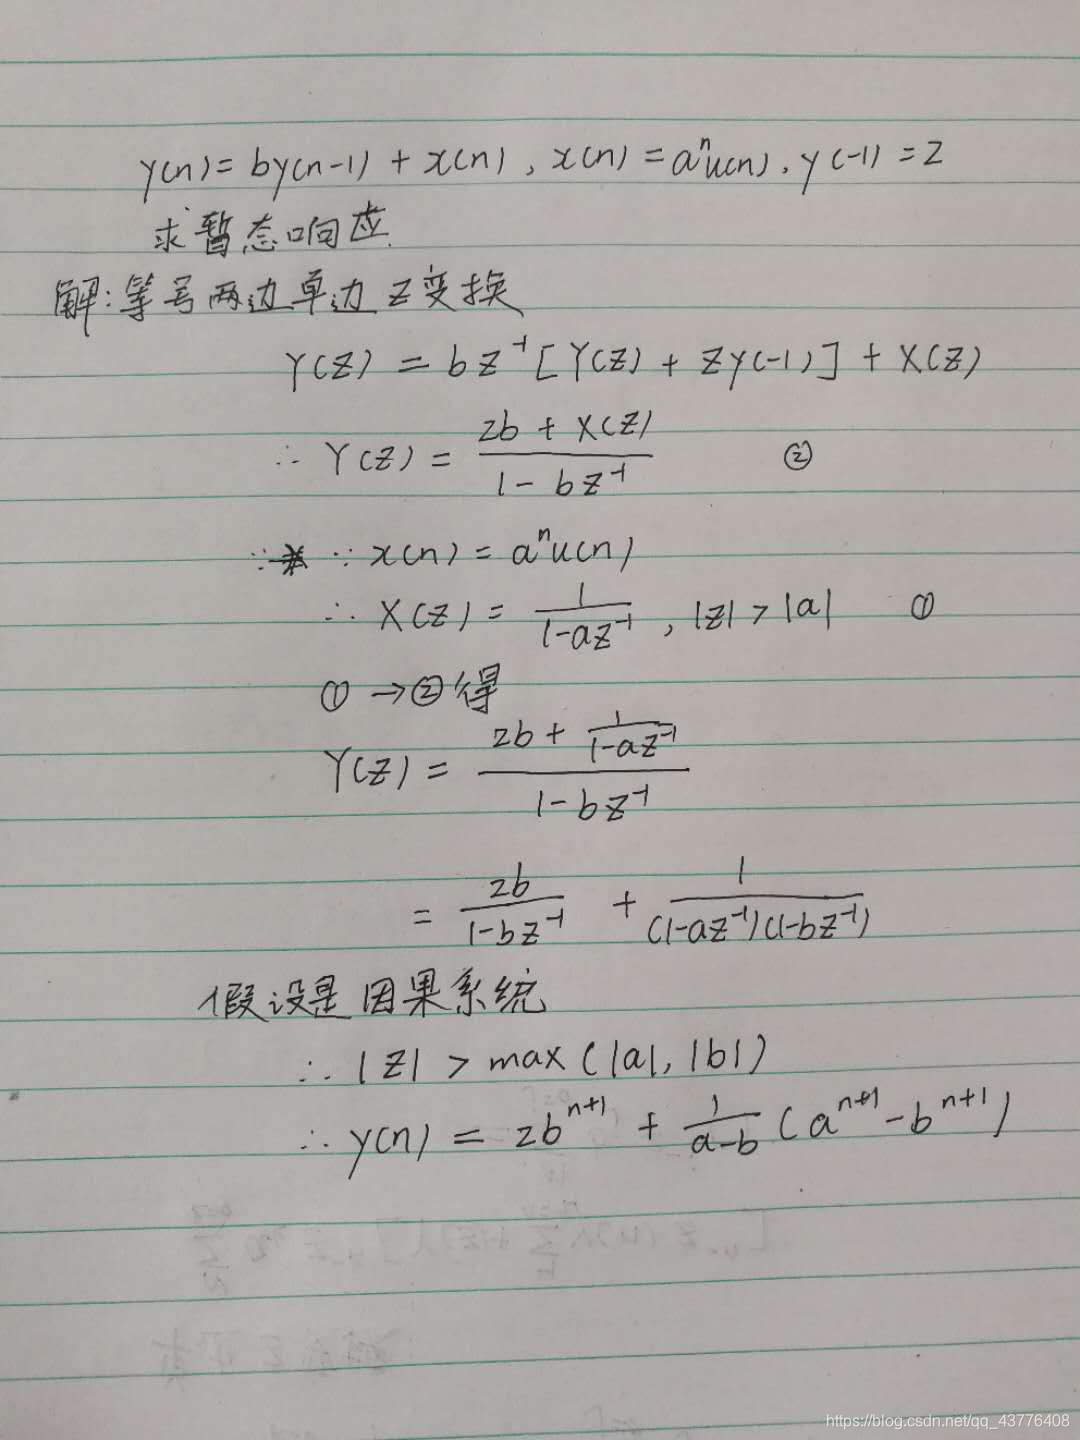 y(n) = by(n-1) + x(n), x(n) = aⁿu(n), y(-1) = 2
求暂态响应.
解: 等号两边单边Z变换
Y(Z) = bz⁻¹[Y(Z) + ZY(-1)] + X(Z)
∴ Y(Z) = (2b + X(Z)) / (1 - bz⁻¹) ②
∵ ∵ x(n) = aⁿu(n)
∴ X(Z) = 1 / (1 - az⁻¹), |Z| > |a| ①
① → ② 得
Y(Z) = (2b + 1/(1 - az⁻¹)) / (1 - bz⁻¹)
= 2b / (1 - bz⁻¹) + 1 / ((1 - az⁻¹)(1 - bz⁻¹))
假设是因果系统
∴ |Z| > max(|a|, |b|)
∴ y(n) = 2bⁿ⁺¹ + 1/(a-b) (aⁿ⁺¹ - bⁿ⁺¹)
https://blog.csdn.net/qq_43776408